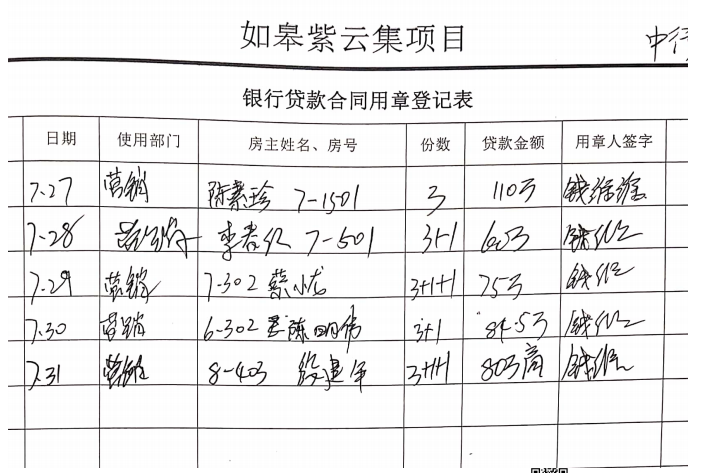 如皋紫云集项目
中行
银行贷款合同用章登记表
日期 使用部门 房主姓名、房号 份数 贷款金额 用章人签字
7-27 营销 陈素珍 7-1501 3 110万
7-28 营销 李春红 7-501 3+1 60万
7-29 营销 7-302 蔡小龙 3+1+1 75万
7.30 营销 6-302 陈明伟 3+1 84.5万
7.31 营销 8-403 段建军 3+1+1 80万